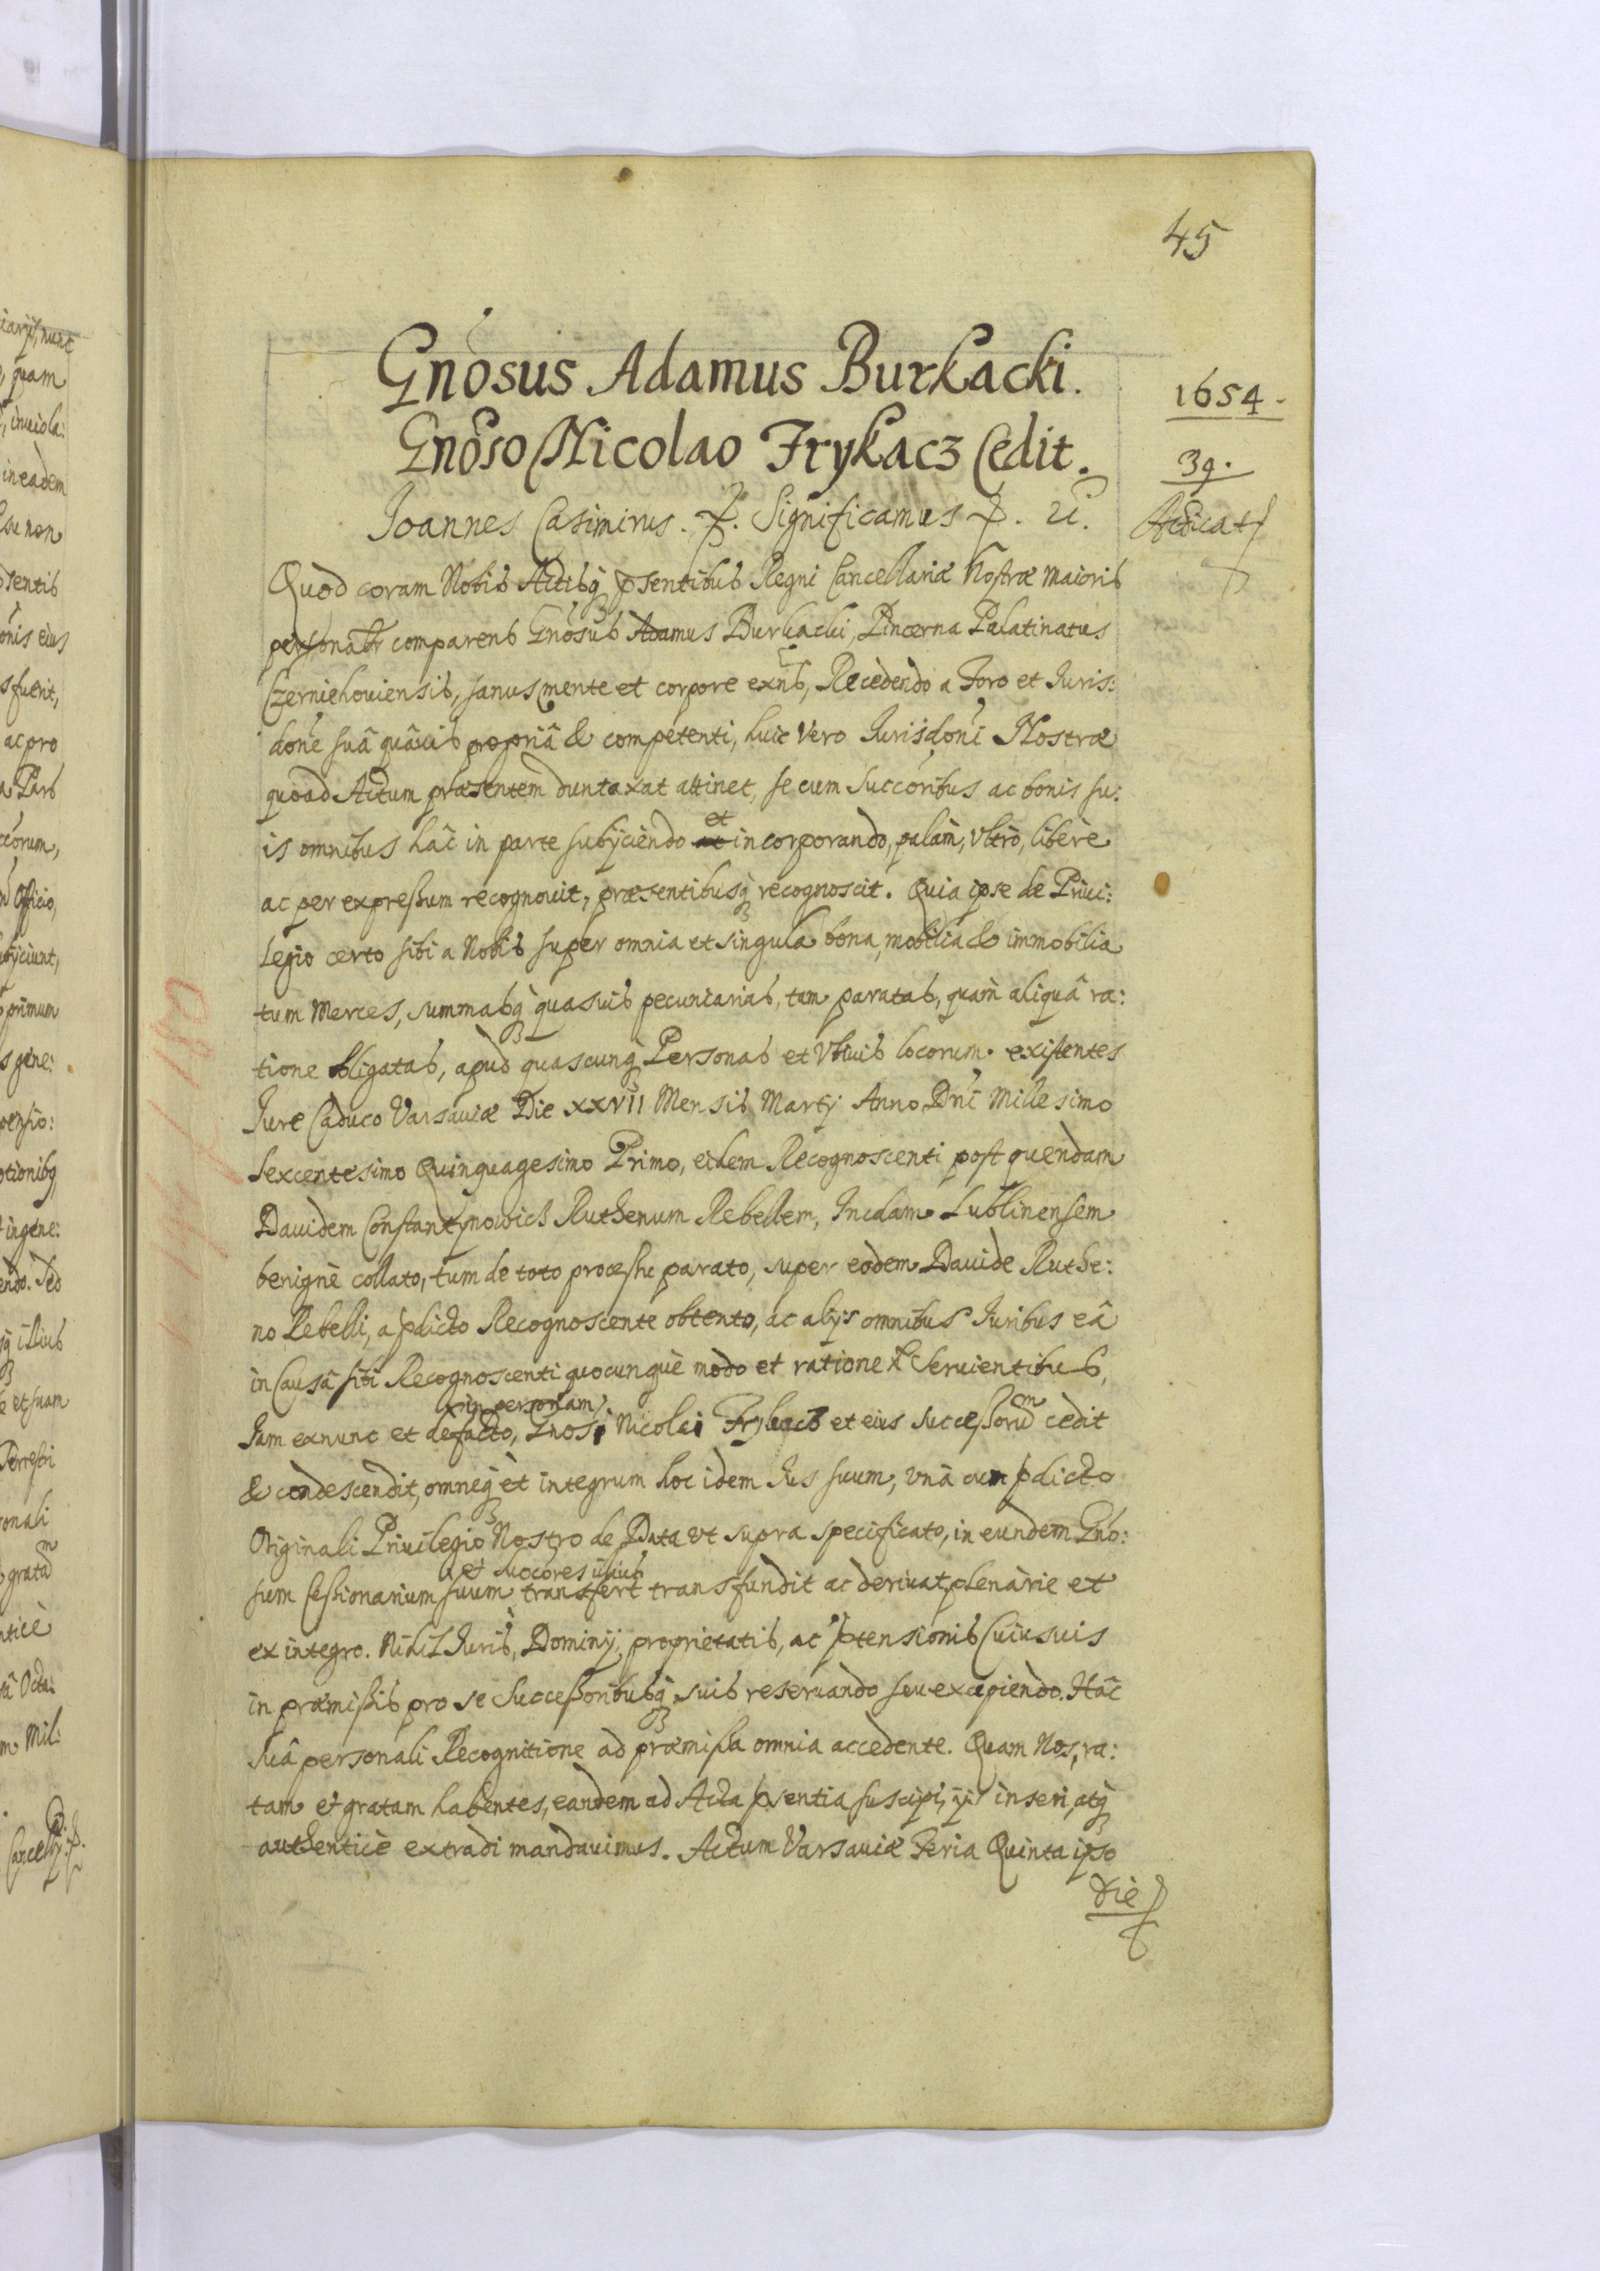 45
Gnosus Adamus Burkacki.
Gnoso Nicolao Frykacz Cedit.
1654.
39.
Joannes Casimirus. Significamus
Quod coram Nobis Actisq psentibus Regni Cancellariæ Nostræ Maioris
personalr comparens Gnosus Adamus Burkacki, Pincerna Palatinatus
Czerniehouiensis, sanus mente et corpore exns, Recedendo a Foro et Juris:
done suâ quâuis propriâ & competenti, huic vero Jurisdoni Nostræ
quoad Actum præsentem duntaxat attinet, se cum Succoribus ac bonis su:
is omnibus hâc in parte subÿciendo et incorporando, palàm, vltrò, liberè
ac per expressum recognouit, præsentibusq recognoscit. Quia ipse de Priui:
legio certo sibi a Nobis super omnia et singula bona, mobilia & immobilia
tum Merces, summasq quasuis pecuniarias, tam paratas, quàm aliquâ ra:
tione obligatas, apud quascunq Personas et vbiuis locorum existentes
Jure Caduco Varsauiæ Die XXVII Mensis Martÿ Anno Dni Millesimo
Sexcentesimo Quinquagesimo Primo, eidem Recognoscenti post quendam
Dauidem Constantynowicz Ruthenum Rebellem, Incolam Lublinensem
benignè collato, tum de toto processu parato, super eodem Dauide Ruthe:
no Rebelli, a pdicto Recognoscente obtento, ac alÿs omnibus Juribus eâ
in Causâ sibi Recognoscenti quocunque modo et ratione Seruientibus,
in personam
Jam exnunc et defacto, Gnosi Nicolai Frykacz et eius Successorum cedit
& condescendit, omneq et integrum hoc idem Jus suum, vnâ cum pdicto
Originali Priuilegio Nostro de Data vt supra specificato, in eundem Gno:
et succores illius
sum Cessionarium suum transfert transfundit ac deriuat, plenariè et
ex integro. Nihil Juris, Dominÿ, proprietatis, ac ptensionis Cuiusuis
in præmissis pro se Successoribusq suis reseruando seu excipiendo. Hâc
suâ personali Recognitione ad præmissa omnia accedente. Quam Nos, ra:
tam et gratam habentes, eandem ad Acta psentia suscipi, ÿs inseri, atq
authenticè extradi mandauimus. Actum Varsauiæ Feria Quinta ipso
die